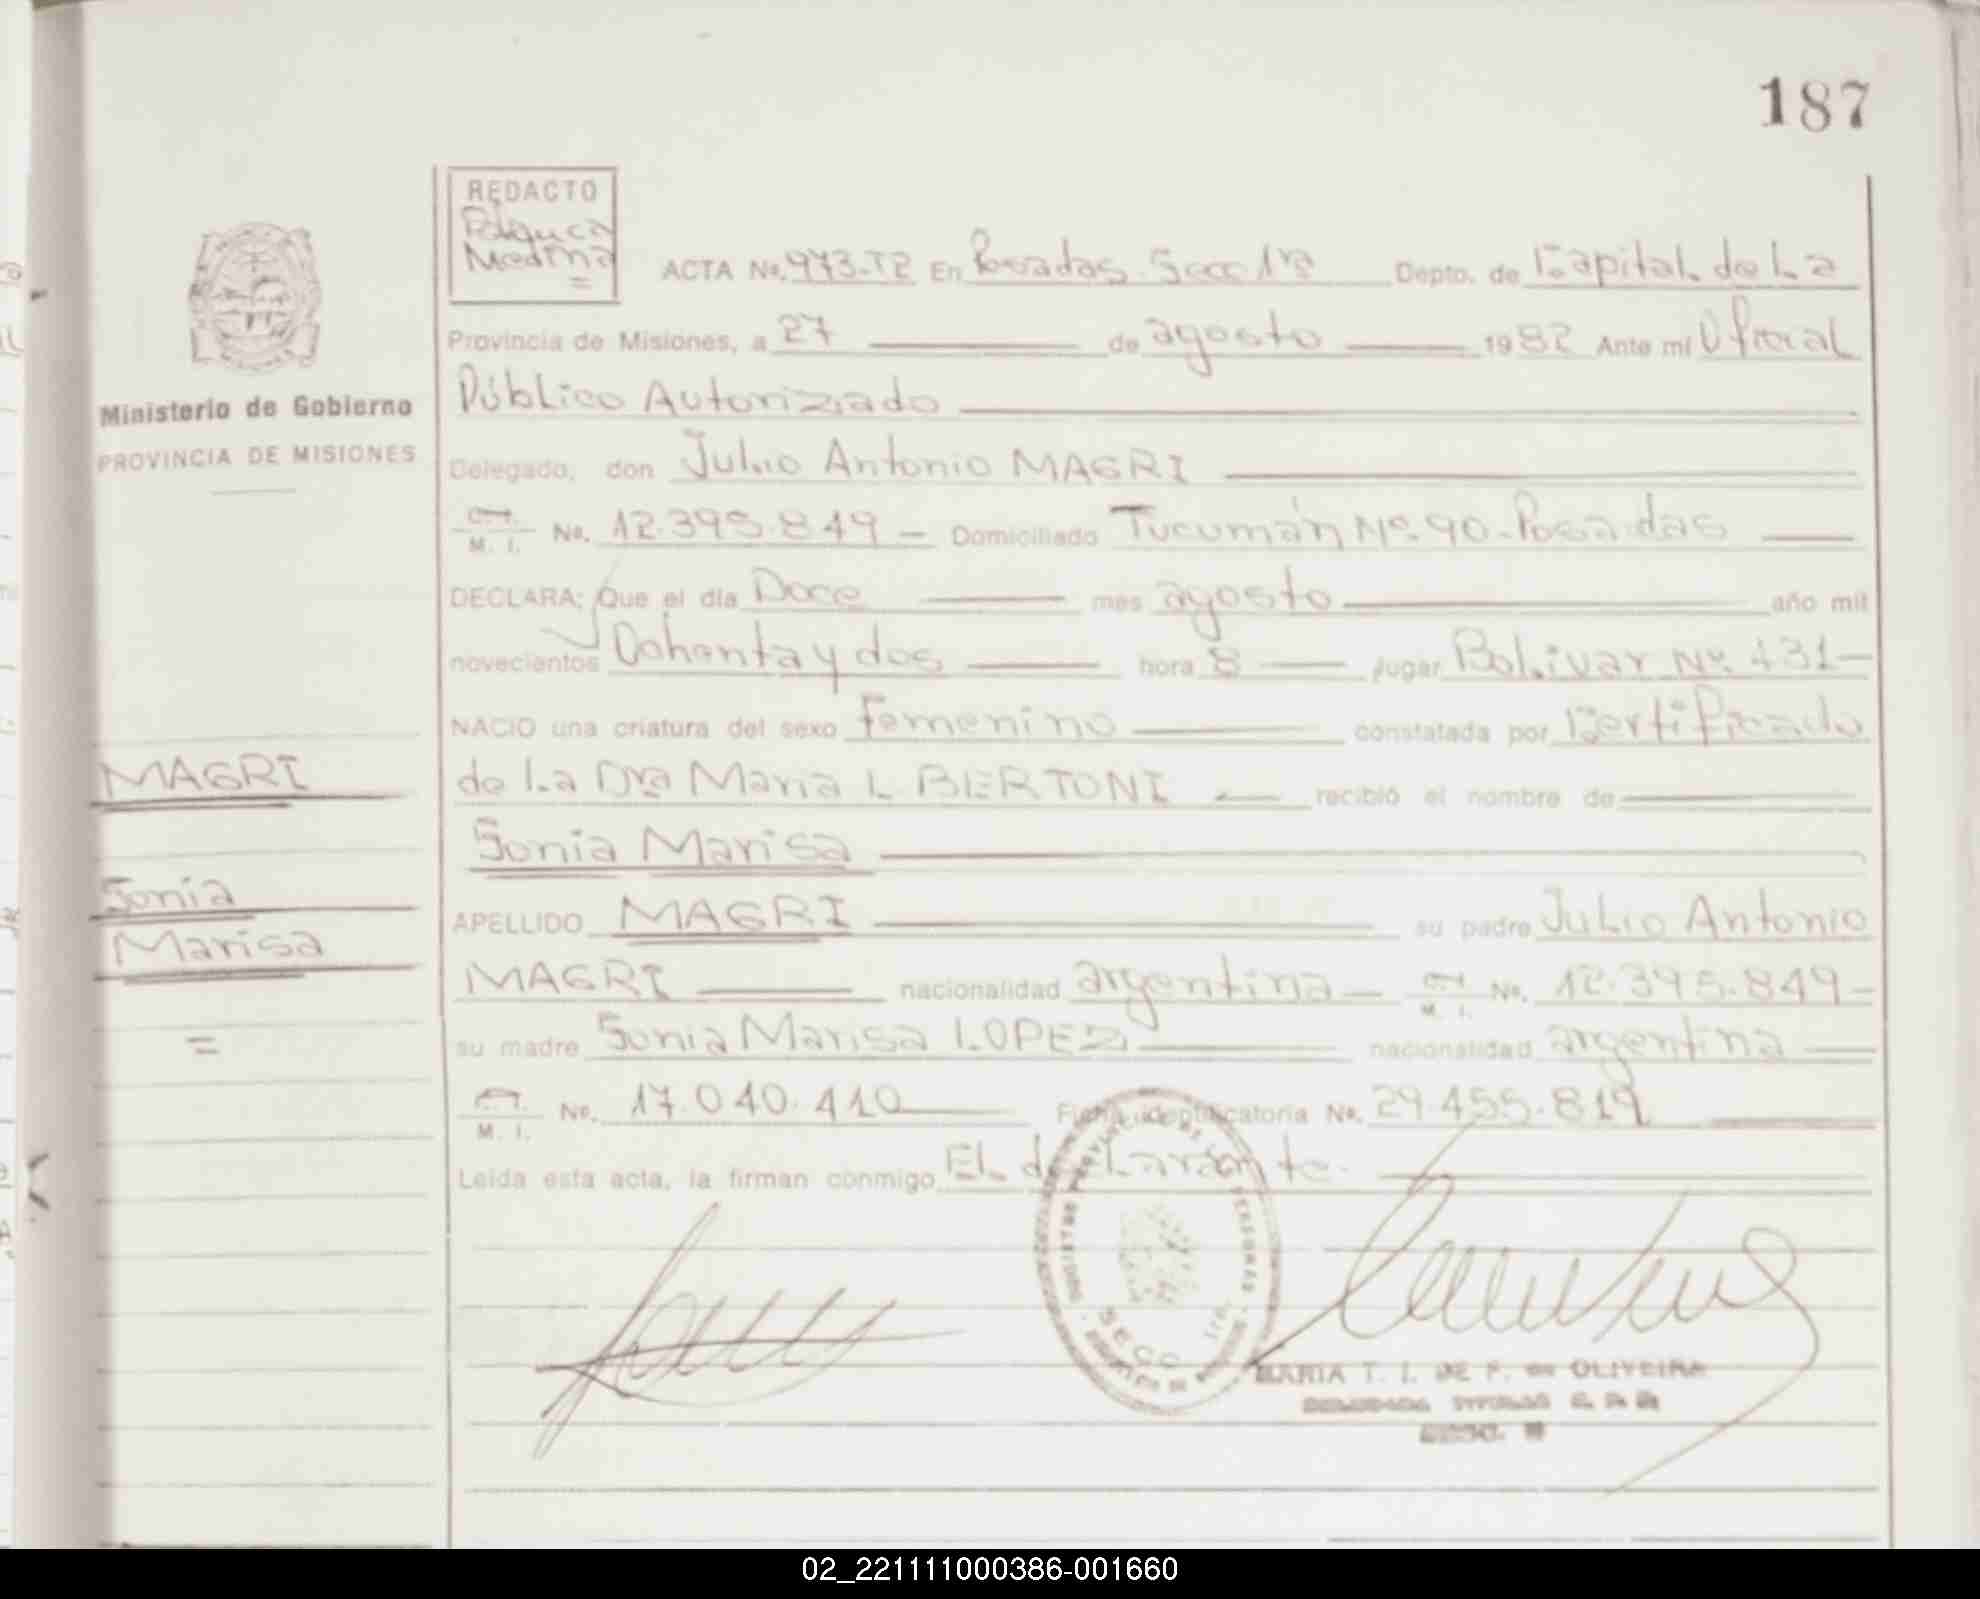 187
REDACTO
Medina
ACTA No. 973-T2 En Posadas Secc 1ra Depto. de Capital de La
Ministerio de Gobierno
PROVINCIA DE MISIONES
Provincia de Misiones, a 27 de agosto 1982 Ante mí Oficial
Público Autorizado
Delegado, don Julio Antonio MAGRI
M. I. No. 12.395.849 - Domiciliado Tucumán No. 90 - Posadas
DECLARA: Que el día Doce mes agosto año mil
novecientos Ochenta y dos hora 8 lugar Bolivar No. 431
NACIO una criatura del sexo Femenino constatada por Certificado
de La Dra Maria L BERTONI recibió el nombre de
Sonia Marisa
APELLIDO MAGRI su padre Julio Antonio
MAGRI nacionalidad argentina - M. I. No. 12.395.849 -
su madre Sonia Marisa LOPEZ nacionalidad argentina
M. I. No. 17.040.410 Ficha identificatoria No. 29.455.819
Leída esta acta, la firman conmigo EL declarante.
MAGRI
Sonia
Marisa
=
SECC. 1ra.
MARIA T. I. DE F. de OLIVEIRA
02_221111000386-001660